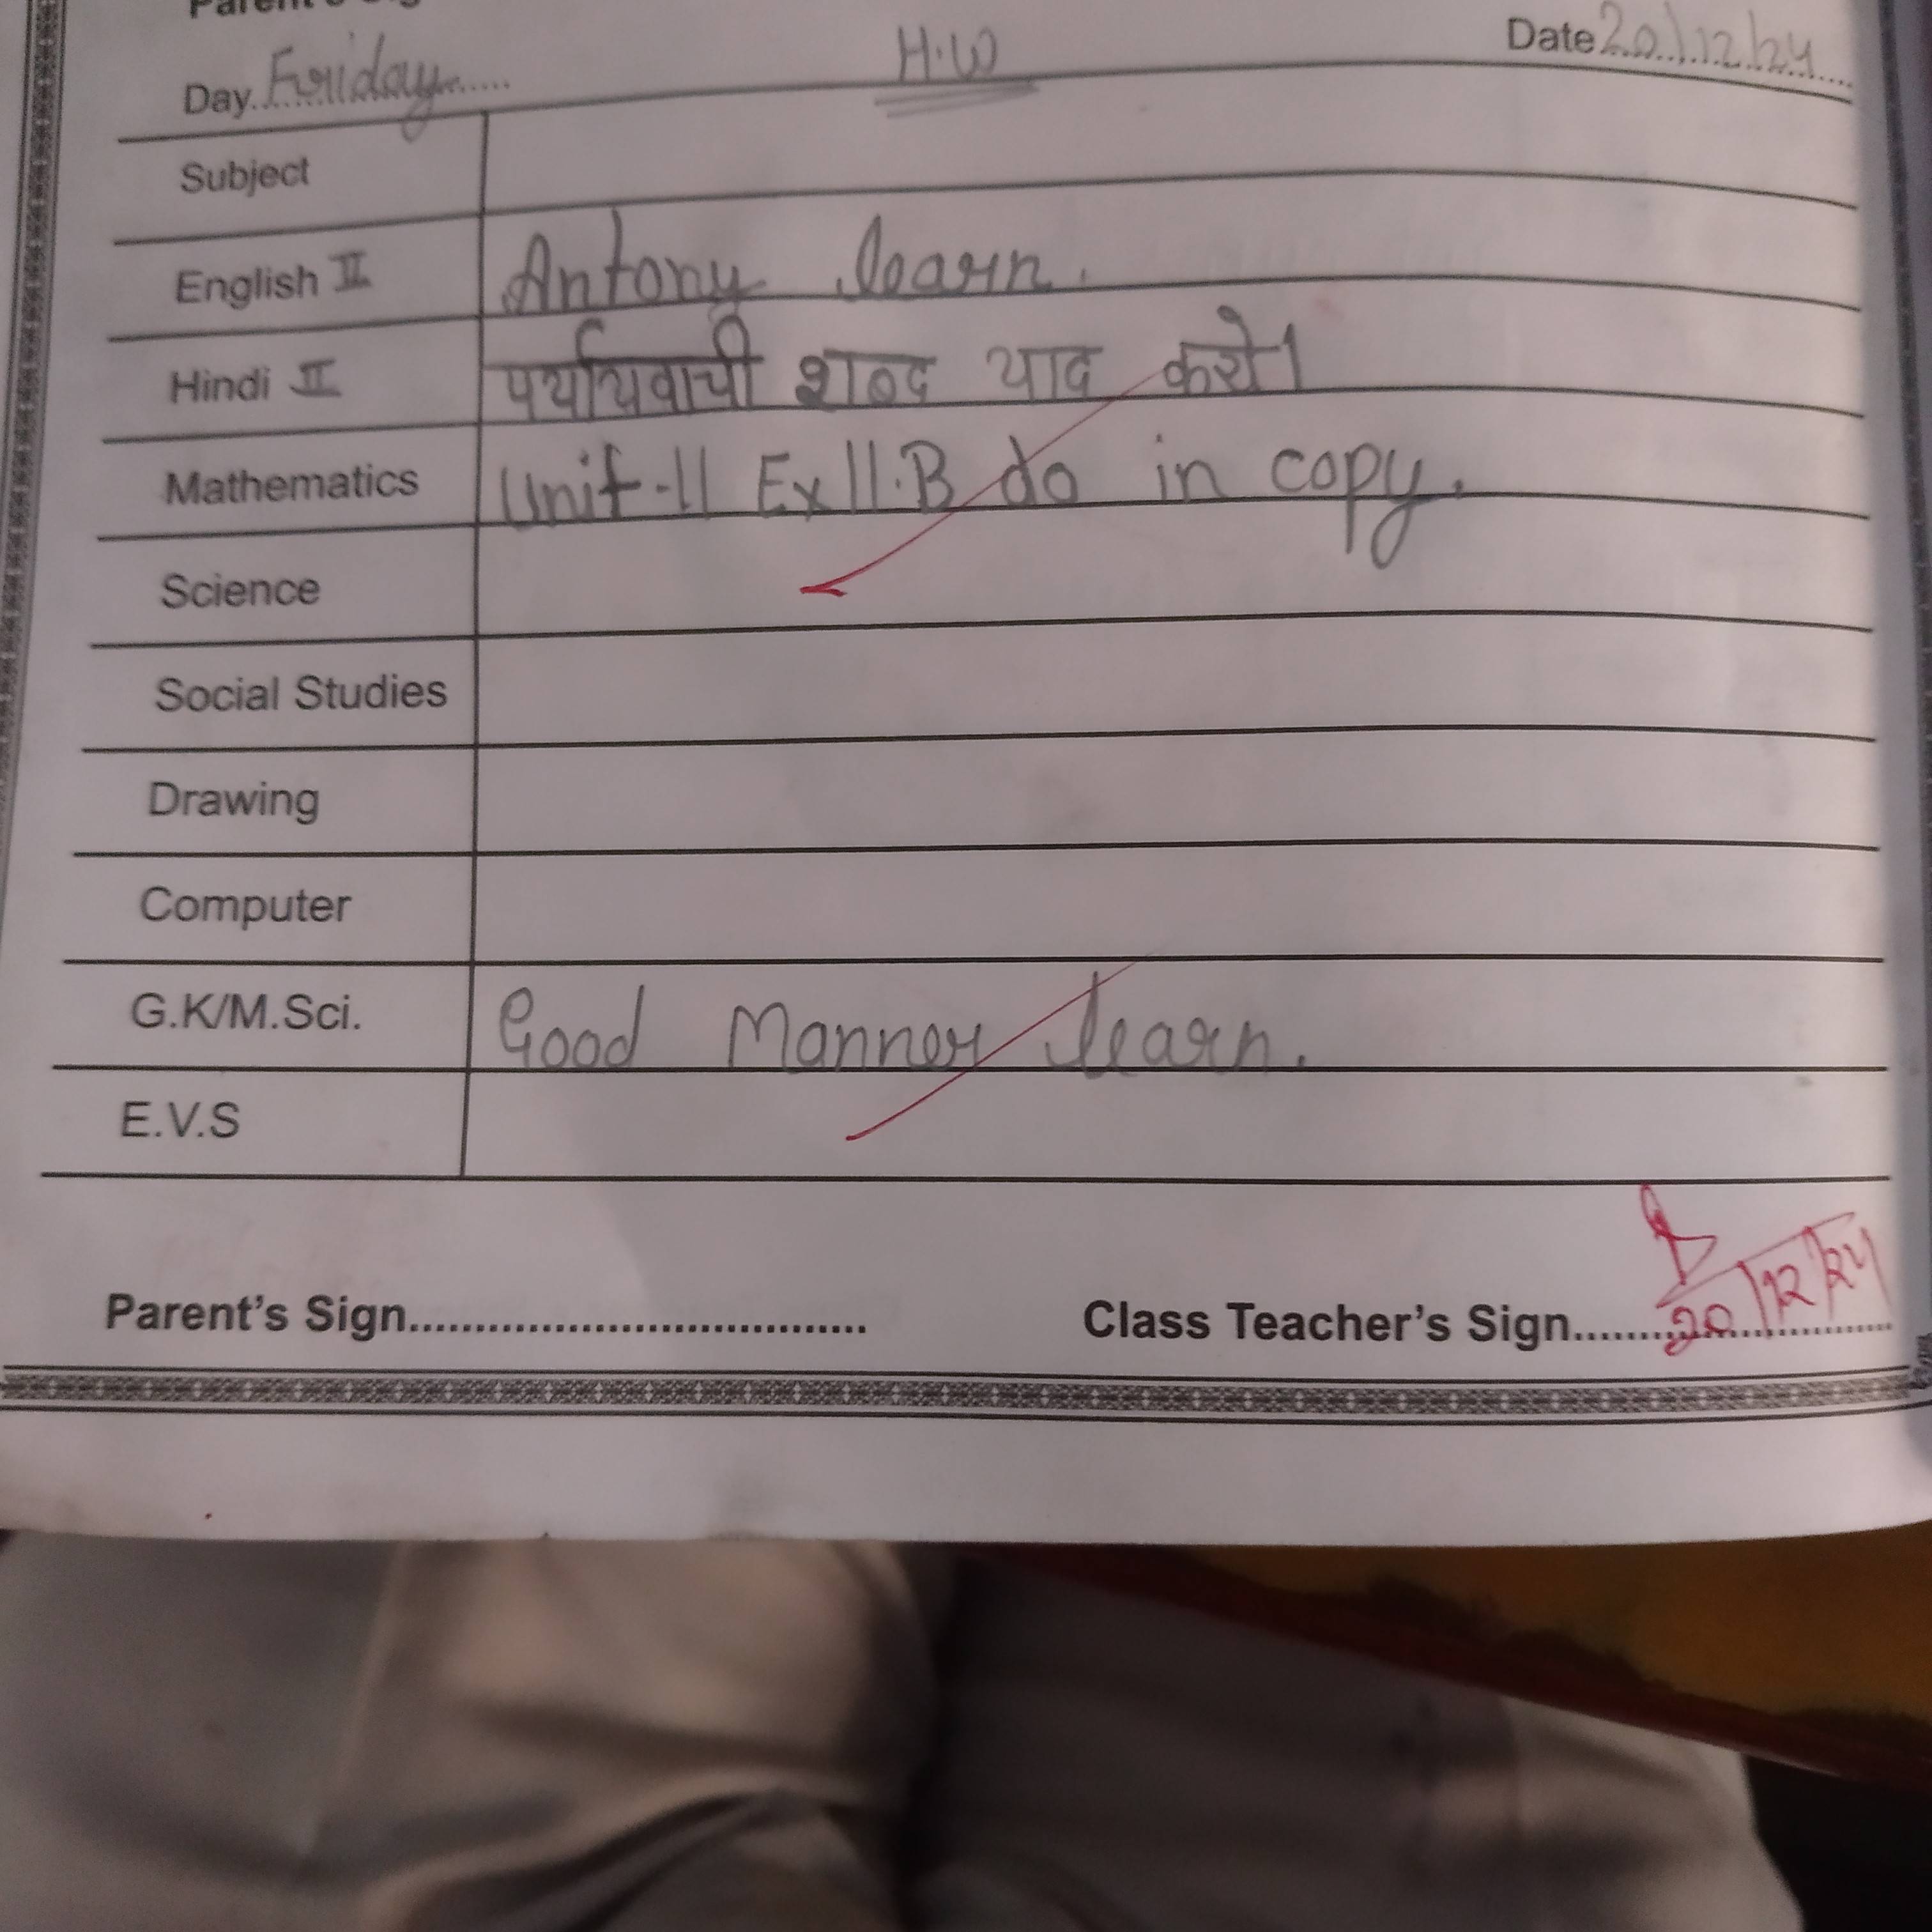 Day Friday H.W Date 20/12/24
Subject
English II Antony learn.
Hindi II पर्यायवाची शब्द याद करो।
Mathematics Unit-11 Ex 11.B do in copy.
Science
Social Studies
Drawing
Computer
G.K/M.Sci. Good Manner learn.
E.V.S
Parent's Sign Class Teacher's Sign 20/12/24